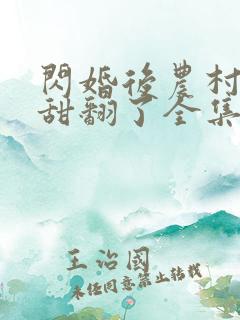 閃婚後農村
甜翻了全集
王治國
未經同意禁止轉載